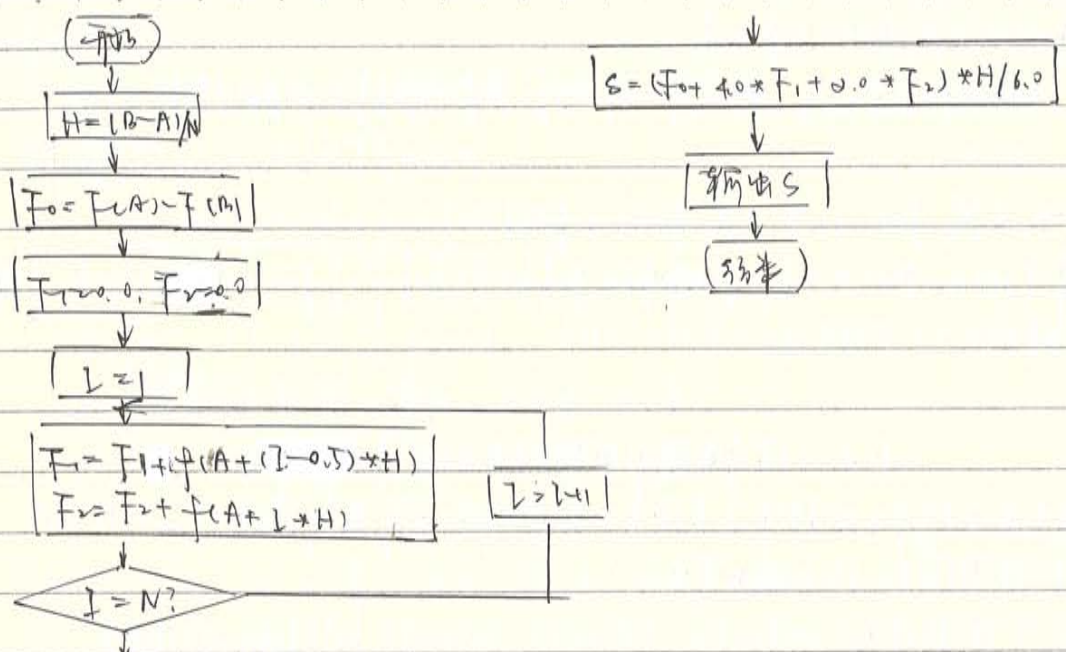 开始
H=(B-A)/N
F0=F(A)-F(B)
F1=0.0, F2=0.0
I=1
F1=F1+f(A+(I-0.5)*H)
F2=F2+f(A+I*H)
I=I+1
I=N?
S=(F0+4.0*F1+2.0*F2)*H/6.0
输出S
结束